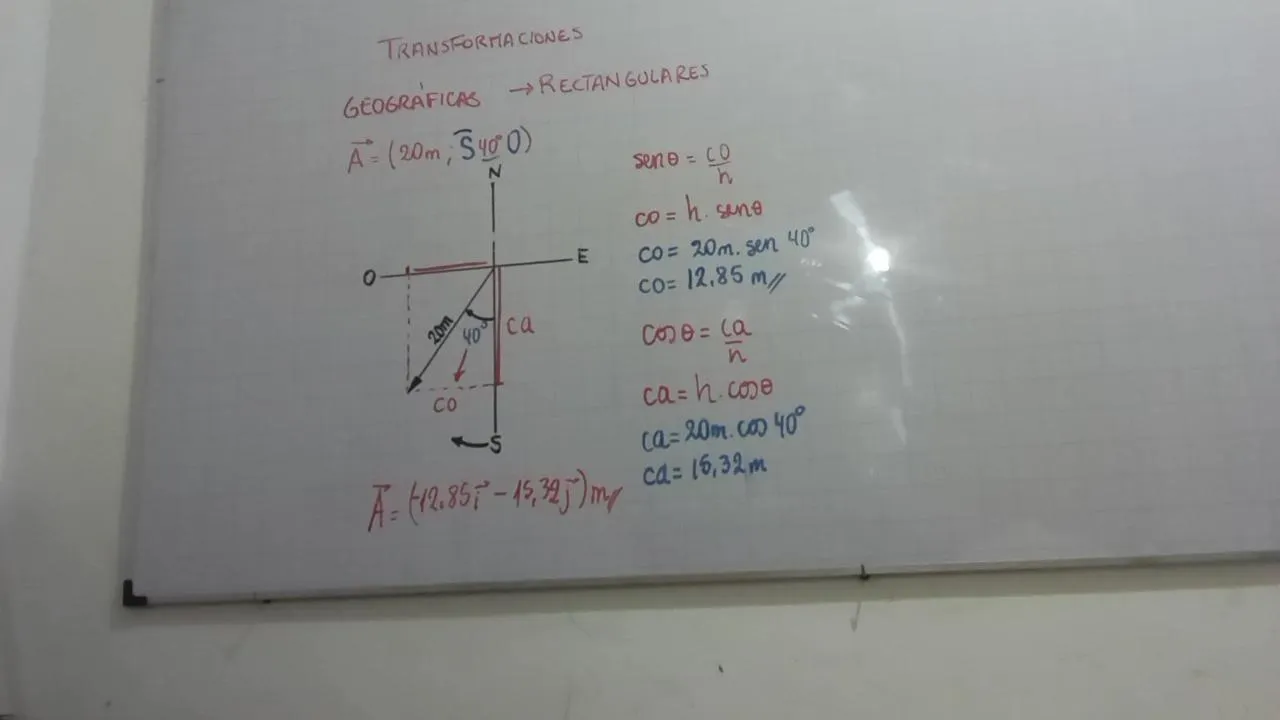 TRANSFORMACIONES
GEOGRÁFICAS → RECTANGULARES
A⃗ = (20m ; S 40° O)
N
O
E
20m
40°
ca
co
S
A⃗ = (-12,85i⃗ - 15,32j⃗)m//
senθ = co/h
co = h. senθ
co = 20m. sen 40°
co = 12,85 m//
cosθ = ca/h
ca = h. cosθ
ca = 20m. cos 40°
ca = 15,32m